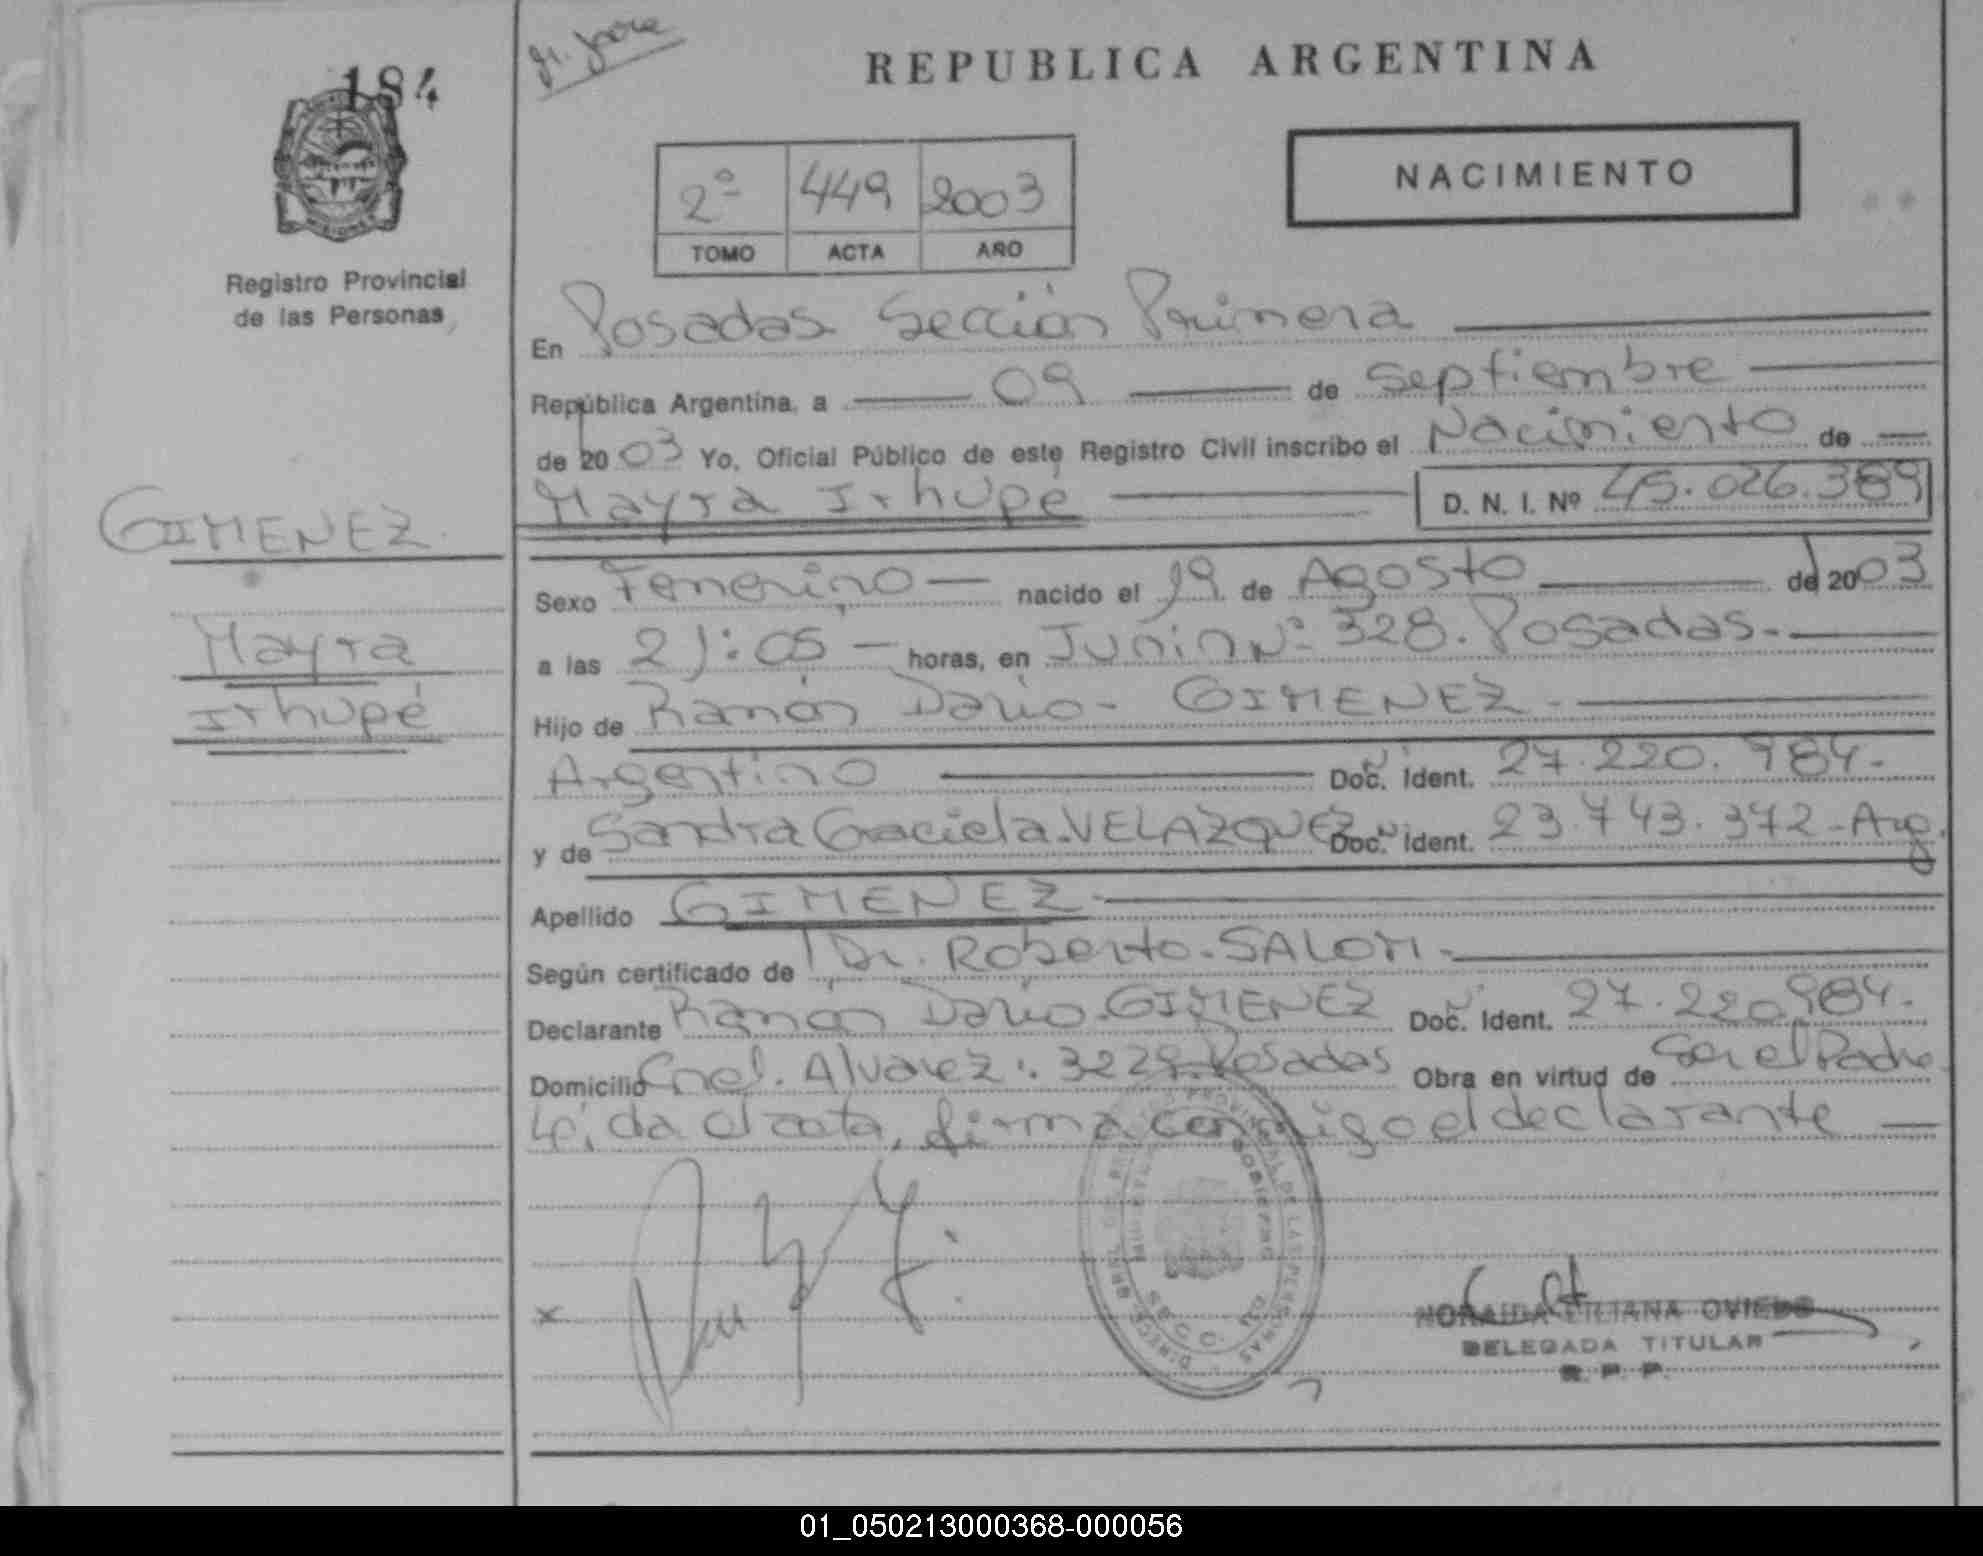 184
REPUBLICA ARGENTINA
NACIMIENTO
2º 449 2003
TOMO ACTA AÑO
Registro Provincial
de las Personas
En Posadas Sección Primera
República Argentina, a 09 de Septiembre
de 2003 Yo, Oficial Público de este Registro Civil inscribo el Nacimiento de
Mayra Irhupé D. N. I. Nº 45.026.389
GIMENEZ
Mayra
Irhupé
Sexo Femenino nacido el 19 de Agosto de 2003
a las 21:05 horas, en Junin Nº 328. Posadas.
Hijo de Ramón Dario GIMENEZ
Argentino Doc. Ident. 27.220.984.
y de Sandra Graciela VELAZQUEZ Doc. Ident. 23.743.372 - Arg.
Apellido GIMENEZ
Según certificado de Dr. Roberto SALOM
Declarante Ramón Dario GIMENEZ Doc. Ident. 27.220.984.
Domicilio Cnel. Alvarez: 3229 Posadas Obra en virtud de Ser el Padre
Leída el acta, firma conmigo el declarante
NORAIDA LILIANA OVIEDO
DELEGADA TITULAR
R. P. P.
01_050213000368-000056